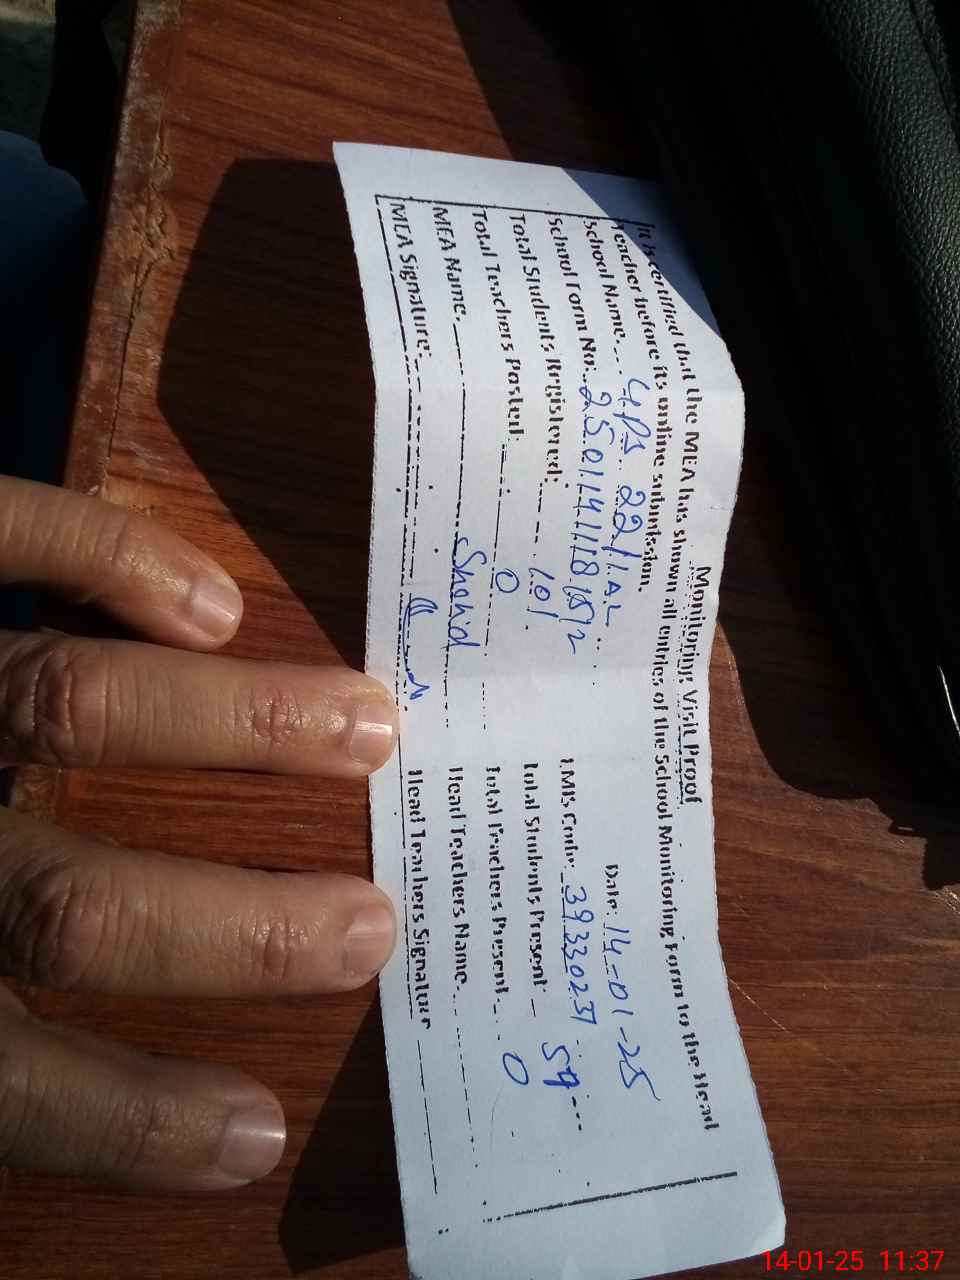 Monitoring Visit Proof
It is certified that the MEA has shown all entries of the School Monitoring Form to the Head
Teacher before its online submission. Date: 14-01-25
School Name: GPS 22/1.AL
School Form No: 25011411181512 EMIS Code: 39330231
Total Students Registered: 101 Total Students Present 59
Total Teachers Posted: 0 Total Teachers Present 0
MEA Name. Shahid Head Teachers Name.
MEA Signature: Head Teachers Signature
14-01-25 11:37